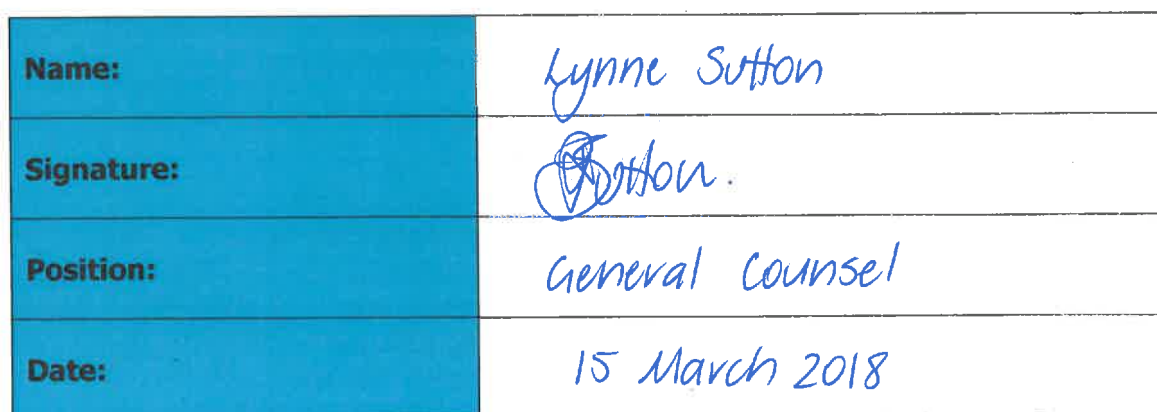 Name: Lynne Sutton
Signature: Sutton.
Position: General Counsel
Date: 15 March 2018